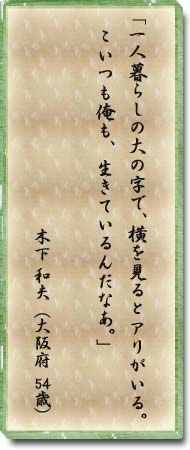 「一人暮らしの大の字で、横を見るとアリがいる。
こいつも俺も、生きているんだなあ。」
木下 和夫 （大阪府 54歳）